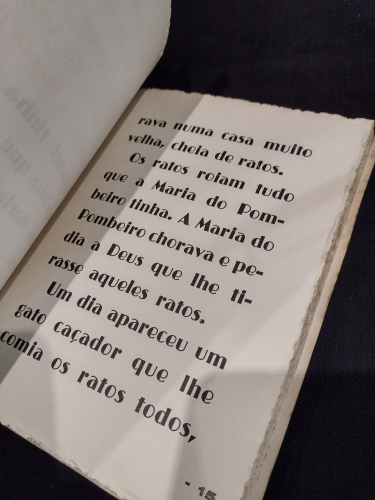 rava numa casa muito
velha, cheia de ratos.
Os ratos roiam tudo
que a Maria do Pom-
beiro tinha. A Maria do
Pombeiro chorava e pe-
dia a Deus que lhe ti-
rasse aqueles ratos.
Um dia apareceu um
gato caçador que lhe
comia os ratos todos,
- 15